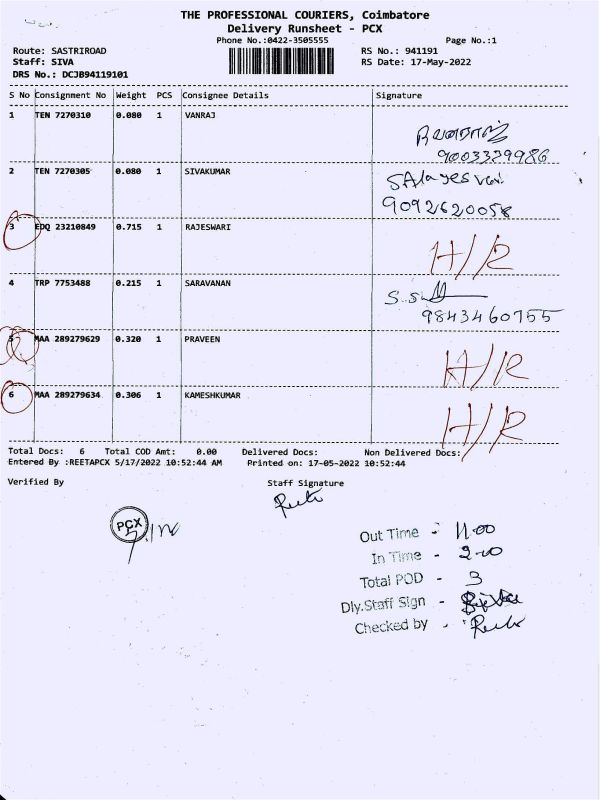 THE PROFESSIONAL COURIERS, Coimbatore
Delivery Runsheet - PCX
Phone No.:0422-3505555 Page No.:1
Route: SASTRIROAD RS No.: 941191
Staff: SIVA RS Date: 17-May-2022
DRS No.: DCJB94119101
S No Consignment No Weight PCS Consignee Details Signature
1 TEN 7270310 0.080 1 VANRAJ
9003329986
2 TEN 7270305 0.080 1 SIVAKUMAR
9092620058
3 EDQ 23210849 0.715 1 RAJESWARI H/R
4 TRP 7753488 0.215 1 SARAVANAN
9843460755
5 MAA 289279629 0.320 1 PRAVEEN H/R
6 MAA 289279634 0.306 1 KAMESHKUMAR H/R
Total Docs: 6 Total COD Amt: 0.00 Delivered Docs: Non Delivered Docs:
Entered By :REETAPCX 5/17/2022 10:52:44 AM Printed on: 17-05-2022 10:52:44
Verified By Staff Signature
PCX
Out Time - 11.00
In Time - 2.00
Total POD - 3
Dly.Staff Sign -
Checked by -